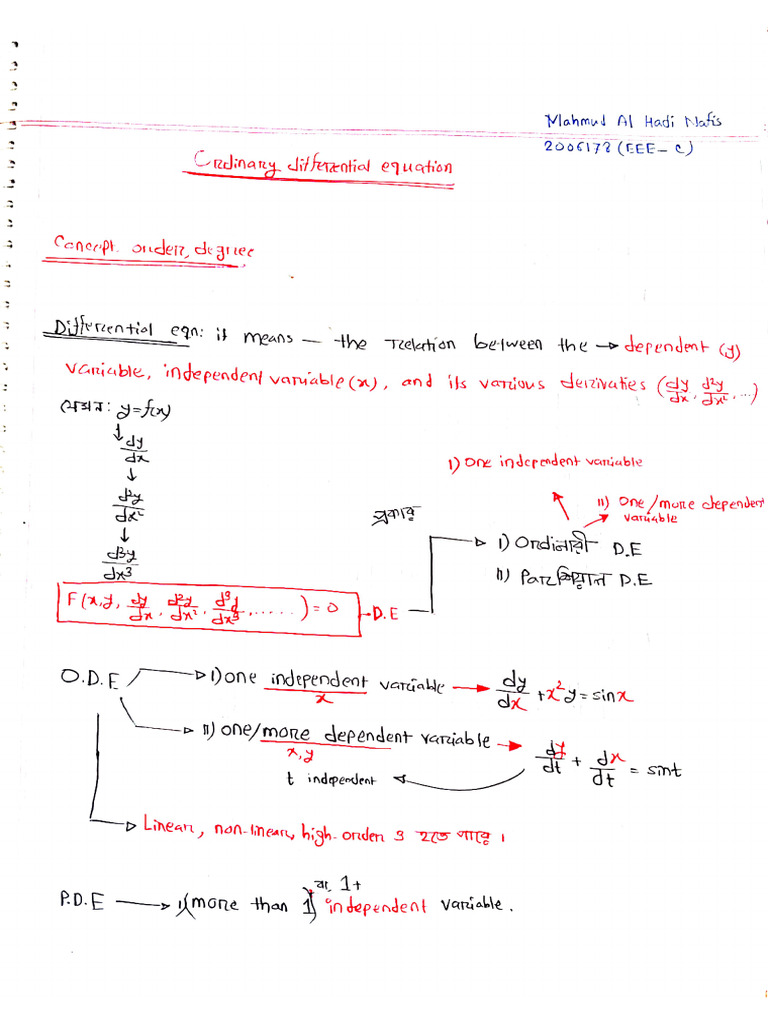 Mahmud Al Hadi Nafis
2006178 (EEE- C)
Ordinary differential equation
Concept. order, degree
Differential eqn: it means — the relation between the → dependent (y)
variable, independent variable (x), and its various derivaties (dy/dx, d²y/dx², ...)
যেমন: y=f(x)
↓
dy/dx
↓
d²y/dx²
↓
d³y/dx³
I) One independent variable
II) One/more dependent
variable
প্রকার
I) অর্ডিনারী D.E
II) পারশিয়াল D.E
F(x,y, dy/dx, d²y/dx², d³y/dx³, .....) = 0 → D.E
O.D.E → I) one independent variable → dy/dx + x²y = sinx
x
II) one/more dependent variable → dy/dt + dx/dt = sint
x,y
t independent
→ Linear, non-linear, high-order ও হতে পারে।
বা, 1+
P.D.E → I) (more than 1) independent variable.